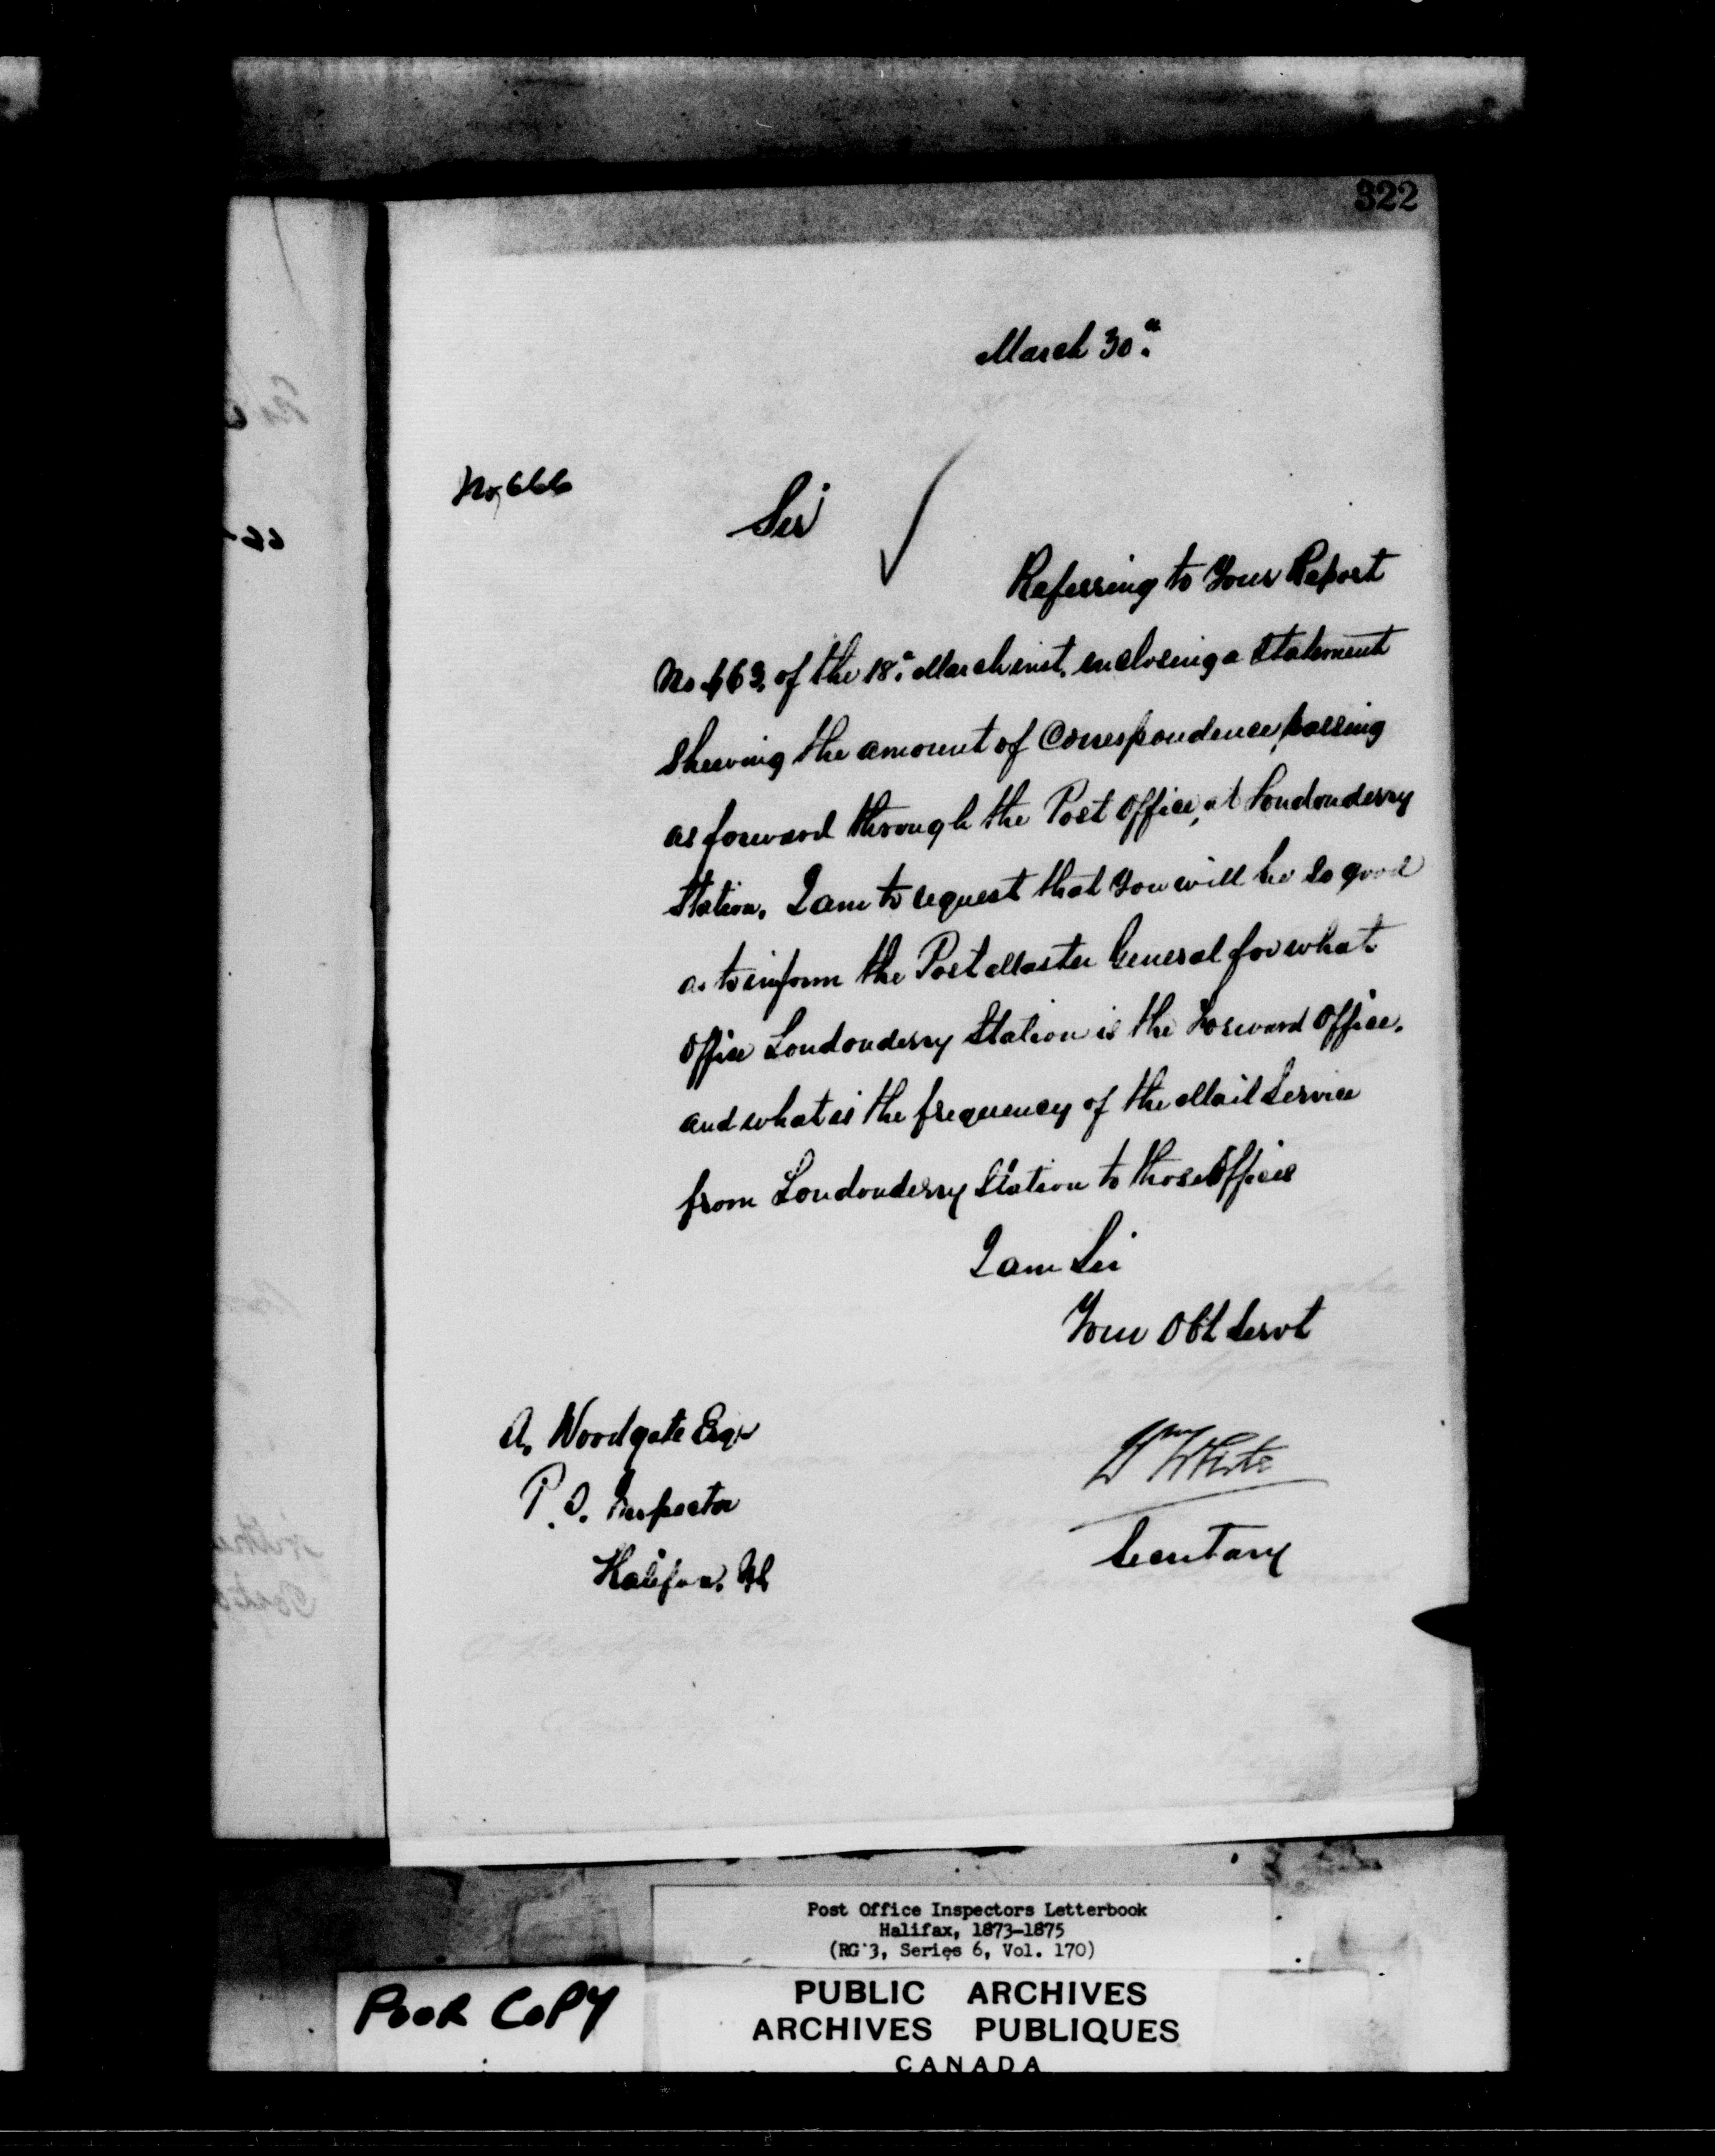 322
March 30.
No. 666
Sir
Referring to Your Report
No 663. of the 18. March inst. enclosing a Statement
Shewing the amount of Correspondence, passing
as forward through the Post Office, at Londonderry
Station. I am to request that You will be so good
as to inform the Post Master General for what
Office Londonderry Station is the Forward Office.
and what is the frequency of the Mail Service
from Londonderry Station to those Offices
I am Sir
Your Obt Servt
A. Woodgate Esqr
Wm White
P.O. Inspector
Secretary
Halifax. NS
Post Office Inspectors Letterbook
Halifax, 1873-1875
(RG 3, Series 6, Vol. 170)
POOR COPY
PUBLIC ARCHIVES
ARCHIVES PUBLIQUES
CANADA